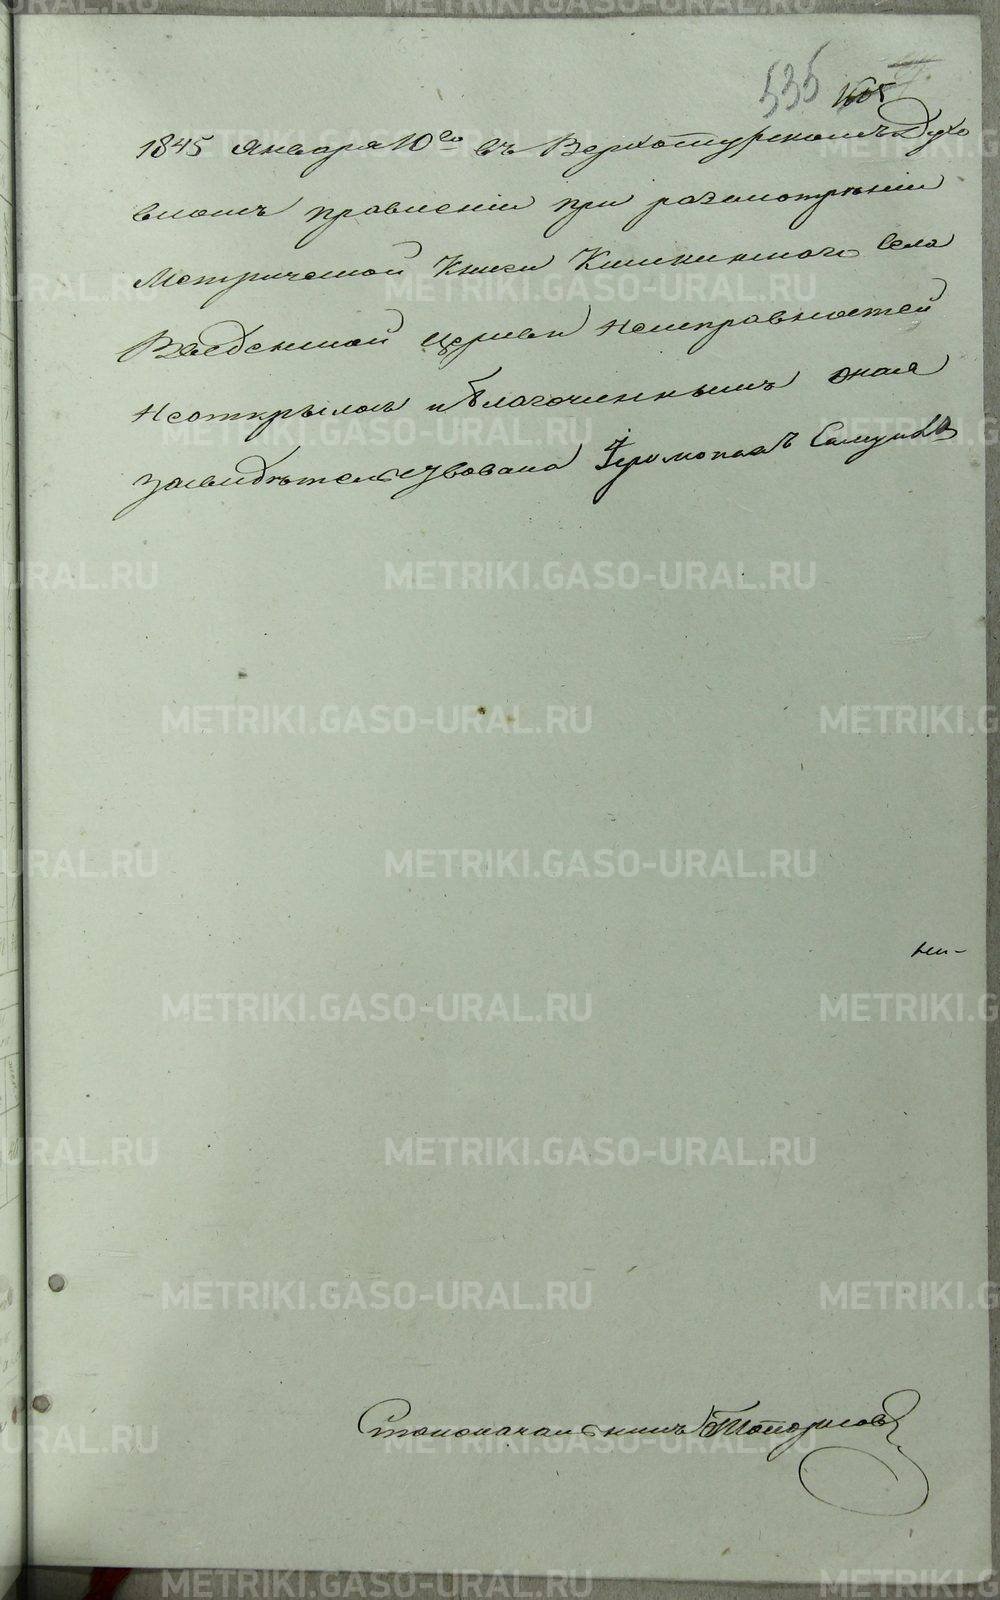 535
1845 Января 10го въ Верхотурскомъ Духо
вномъ правленіи при разсмотрѣніи
Метрической Книги Кишкинскаго Села
Введенской Церкви Неисправностей
Неоткрылось и благочиннымъ оная
засвидѣтельствована Іеромонахъ
Столоначальникъ Топорков
METRIKI.GASO-URAL.RU